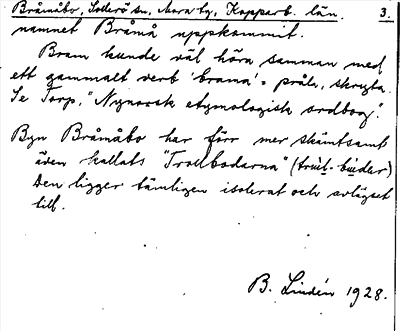 Bråmåbo, Sollerö sn, Mora tg, Kopparb. län. 3.
namnet Bråmå uppkommit.
Bram kunde väl höra samman med
ett gammalt verb 'brama' = pråla, skryta.
Se Torp, "Nynorsk etymologisk ordbog".
Byn Bråmåbo har förr mer skämtsamt
även kallats "Trollbodarna"
Den ligger tämligen isolerat och avlägset
till.
B. Lindén 1928.